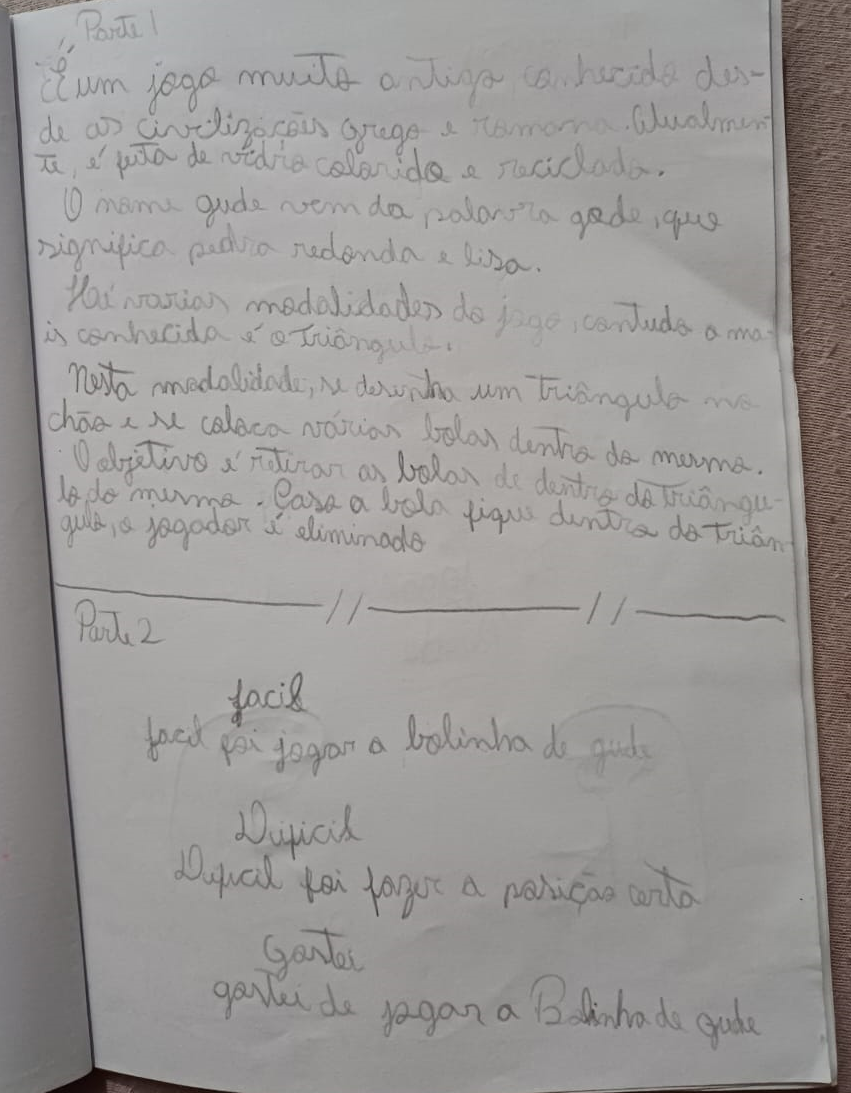 Parte 1
É um jogo muito antigo conhecido des-
de as civilizações grego e romana. Atualmen-
te, é feita de vidro colorido e reciclado.
O nome gude vem da palavra gode, que
significa pedra redonda e lisa.
Há varias modalidades do jogo, contudo a ma-
is conhecida é o triângulo.
Nesta modalidade, se desenha um triângulo no
chão e se coloca várias bolas dentro do mesmo.
O objetivo é retirar as bolas de dentro do triângu-
lo do mesmo. Caso a bola fique dentro do triân-
gulo, o jogador é eliminado
Parte 2
facil
facil foi jogar a bolinha de gude
Dificil
Dificil foi fazer a posição certa
Gostei
gostei de jogar a Bolinha de gude